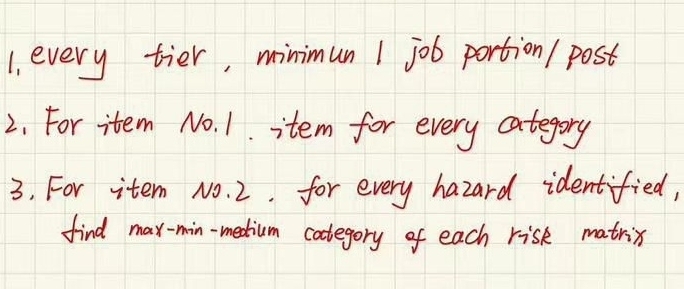 1. every tier, minimun 1 job portion/post
2. For item No.1. item for every category
3. For item No.2. for every hazard identified,
find max-min-medium category of each risk matrix